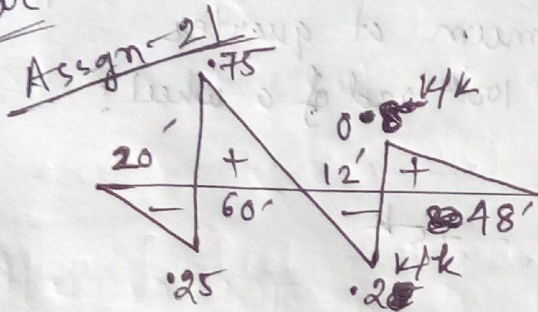 Assgn-21
.75
0.8 k/k
20' + 12' +
- 60' - 48'
.25 k/k
.2